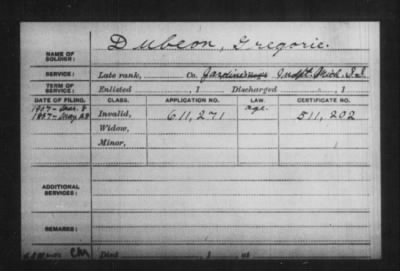 NAME OF SOLDIER: Dubeon, Gregorie.
SERVICE: Late rank, Co. Jardine's Indpt. Mich. I.I.
TERM OF SERVICE: Enlisted , 1 Discharged , 1
DATE OF FILING. CLASS. APPLICATION NO. LAW. CERTIFICATE NO.
Age.
1887-May 28 Invalid, 611,271 511,202
Widow,
Minor,
ADDITIONAL SERVICES:
REMARKS:
Died , 1 at